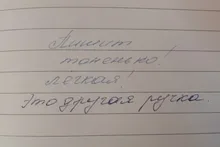 Пишет
тоненько!
лёгкая!
Это другая ручка.